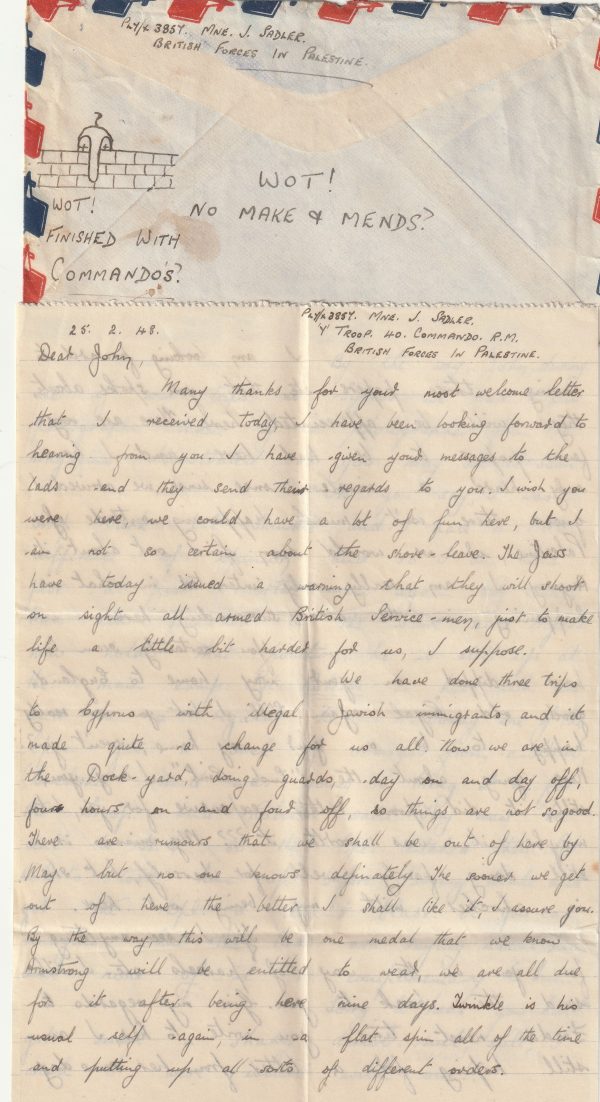 PLY/X 3857. MNE. J. SADLER.
BRITISH FORCES IN PALESTINE.
WOT!
NO MAKE & MENDS?
WOT!
FINISHED WITH
COMMANDO'S?
PLY/X 3857. MNE. J. SADLER.
'Y' TROOP. 40. COMMANDO. R.M.
BRITISH FORCES IN PALESTINE.
25. 2. 48.
Dear John,
Many thanks for your most welcome letter
that I received today, I have been looking forward to
hearing from you. I have given your messages to the
lads and they send their regards to you. I wish you
were here, we could have a lot of fun here, but I
am not so certain about the shore-leave. The Jews
have today issued a warning that they will shoot
on sight all armed British Service-men, just to make
life a little bit harder for us, I suppose.
We have done three trips
to Cyprus with illegal Jewish immigrants, and it
made quite a change for us all. Now we are in
the Dock-yard, doing guards, day on and day off,
four hours on and four off, so things are not so good.
There are rumours that we shall be out of here by
May but no one knows definately. The sooner we get
out of here the better I shall like it, I assure you.
By the way, this will be one medal that we know
Armstrong will be entitled to wear, we are all due
for it after being here nine days. Twinkle is his
usual self again, in a flat spin all of the time
and putting up all sorts of different orders.